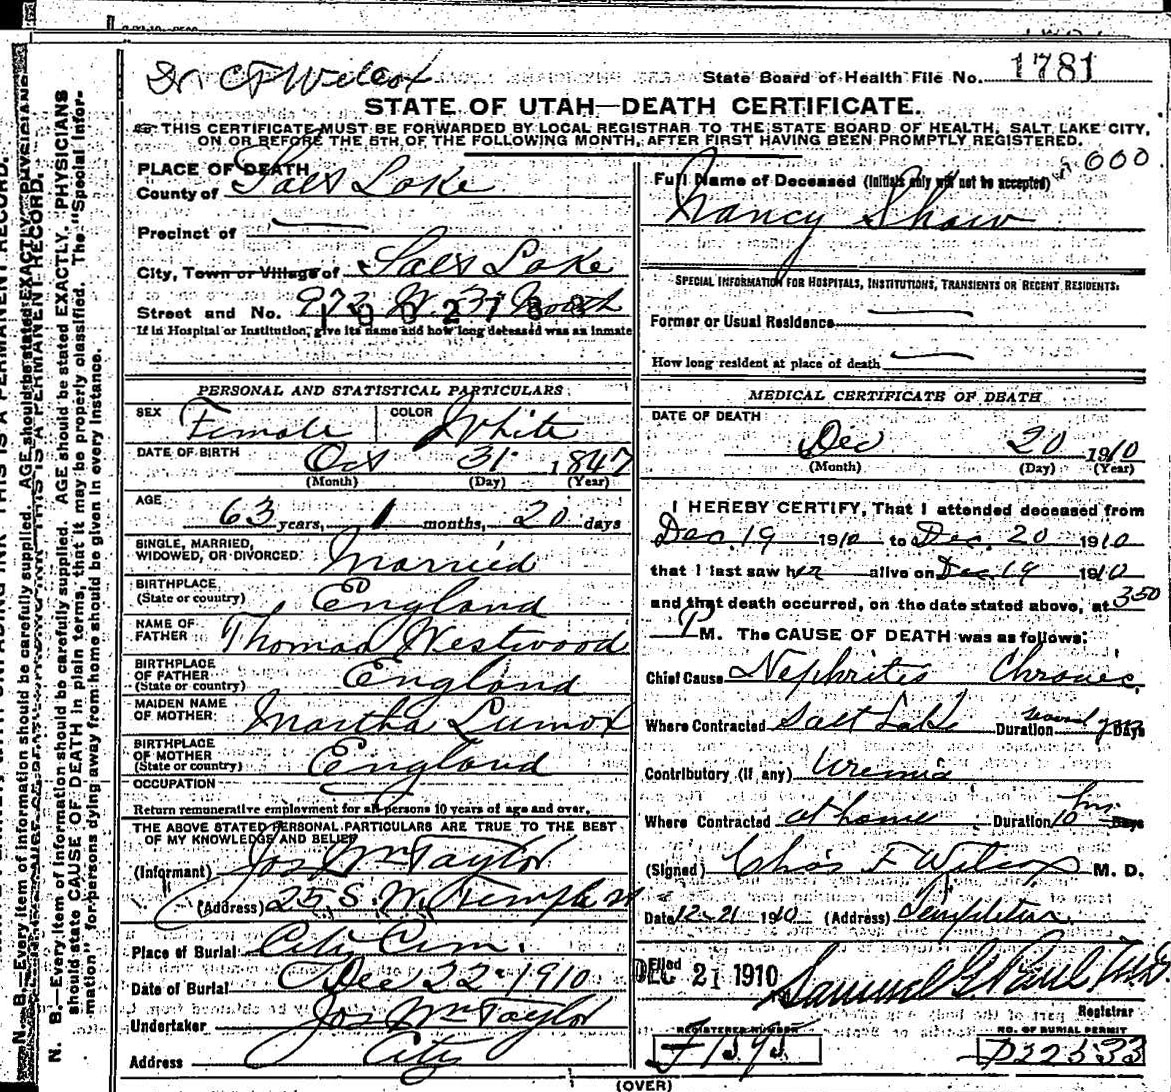 Dr C F Wilcox
State Board of Health File No. 1781
STATE OF UTAH—DEATH CERTIFICATE.
THIS CERTIFICATE MUST BE FORWARDED BY LOCAL REGISTRAR TO THE STATE BOARD OF HEALTH, SALT LAKE CITY,
ON OR BEFORE THE 5TH OF THE FOLLOWING MONTH, AFTER FIRST HAVING BEEN PROMPTLY REGISTERED.
PLACE OF DEATH
County of Salt Lake
Precinct of —
City, Town or Village of Salt Lake
Street and No. 972 W. 3rd North
If in Hospital or Institution, give its name and how long deceased was an inmate
PERSONAL AND STATISTICAL PARTICULARS
SEX Female COLOR White
DATE OF BIRTH Oct 31 1847
(Month) (Day) (Year)
AGE 63 years, 1 months, 20 days
SINGLE, MARRIED,
WIDOWED, OR DIVORCED Married
BIRTHPLACE
(State or country) England
NAME OF
FATHER Thomas Westwood
BIRTHPLACE
OF FATHER
(State or country) England
MAIDEN NAME
OF MOTHER Martha
BIRTHPLACE
OF MOTHER
(State or country) England
OCCUPATION —
Return remunerative employment for all persons 10 years of age and over.
THE ABOVE STATED PERSONAL PARTICULARS ARE TRUE TO THE BEST
OF MY KNOWLEDGE AND BELIEF
(Informant) Jos Wm Taylor
(Address) 25 S. W. Temple
Place of Burial City Cem.
Date of Burial Dec 22 1910
Undertaker Jos Wm Taylor
Address City
000
Full Name of Deceased (Initials only will not be accepted)
Nancy Shaw
SPECIAL INFORMATION FOR HOSPITALS, INSTITUTIONS, TRANSIENTS OR RECENT RESIDENTS:
Former or Usual Residence —
How long resident at place of death —
MEDICAL CERTIFICATE OF DEATH
DATE OF DEATH
Dec 20 1910
(Month) (Day) (Year)
I HEREBY CERTIFY, That I attended deceased from
Dec. 19 1910 to Dec. 20 1910
that I last saw her alive on Dec. 19 1910
and that death occurred, on the date stated above, at 3:50
P M. The CAUSE OF DEATH was as follows:
Chief Cause Nephritis Chronic
Where Contracted Salt Lake Duration several years Days
Contributory (if any) Uremia
Where Contracted at home Duration 10 hrs. Days
(Signed) Chas F Wilcox M. D.
Date 12-21 1910 (Address) Templeton
Filed
DEC 21 1910 Samuel G. Paul M.D.
Registrar
REGISTERED NUMBER NO. OF BURIAL PERMIT
(OVER)
N. B.—Every item of information should be carefully supplied. AGE should be stated EXACTLY. PHYSICIANS
should state CAUSE OF DEATH in plain terms, that it may be properly classified. The "Special Infor-
mation" for persons dying away from home should be given in every instance.